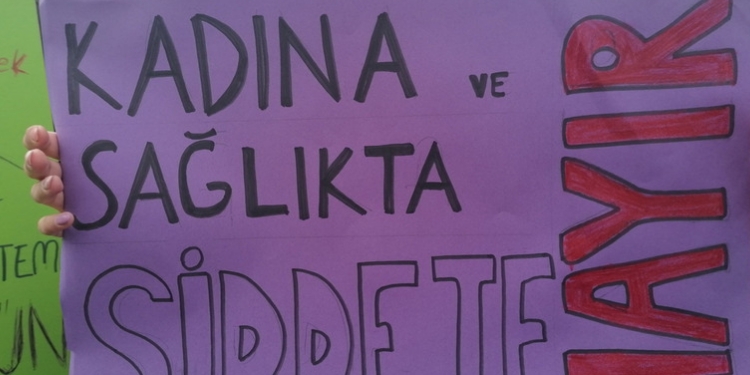 KADINA VE
SAĞLIKTA
ŞİDDETE
HAYIR